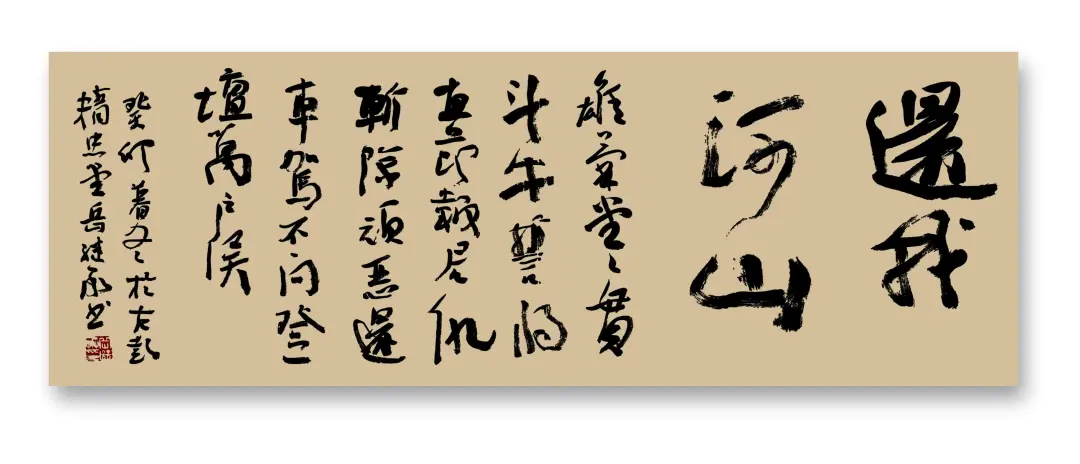 還我
河山
雄氣堂々貫
斗牛誓將
直節報君仇
斬除頑惡還
車駕不問登
壇萬戶侯
癸卯暮冬於古彭
忠堂岳继承书